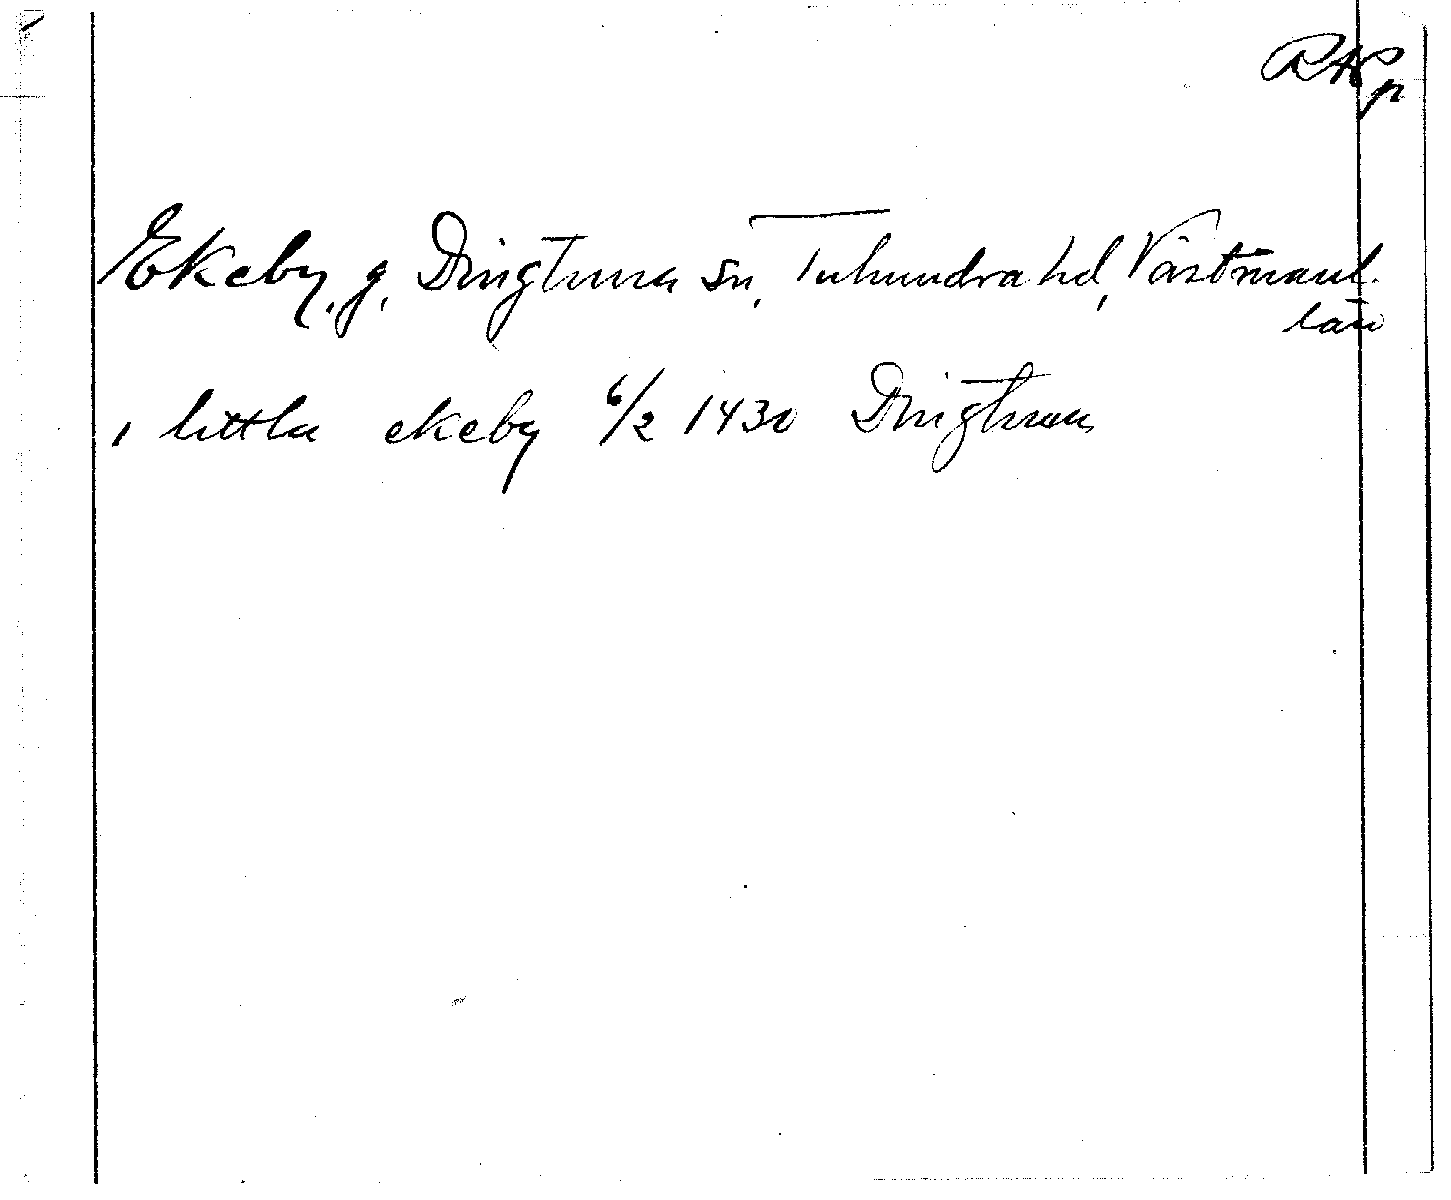 RAp
Ekeby, g, Dingtuna sn, Tuhundra hd, Västmanl.
län
i littla ekeby 6/2 1430 Dingtuna